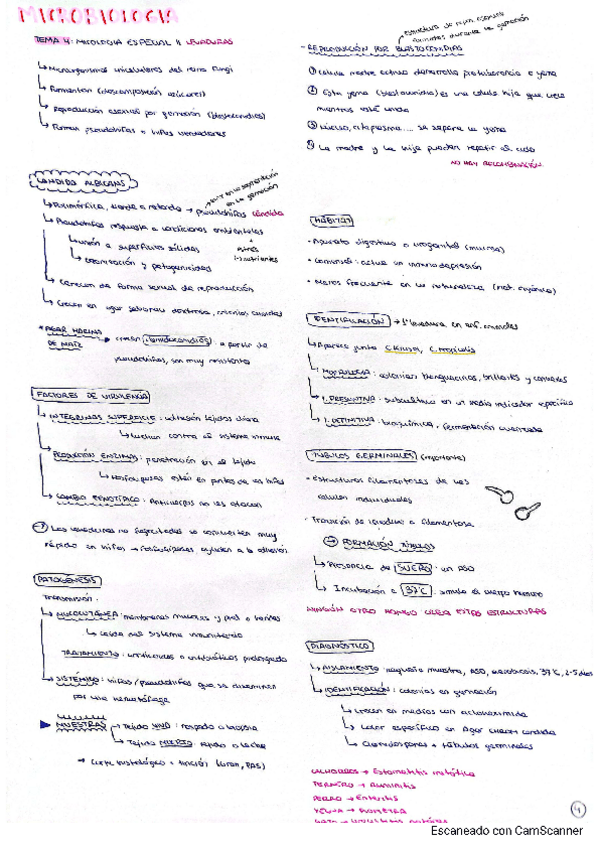 MICROBIOLOGIA
TEMA 4: MICOLOGIA ESPECIAL II LEVADURAS
↳ Microorganismos unicelulares del reino Fungi
↳ Fermentan (descomposición azúcares)
↳ Reproducción asexual por gemación (blastoconidios)
↳ Forman pseudohifas o hifas verdaderas
CANDIDA ALBICANS
↳ Pseudohifas respuesta a condiciones ambientales
↳ unión a superficies sólidas
↳ colonización y patogenicidad
↳ Carecen de forma sexual de reproducción
↳ Crecen en agar sabouraud dextrosa, colonias
* AGAR HARINA DE MAIZ → crean clamidoconidios: a partir de
pseudohifas, son muy resistentes
FACTORES DE VIRULENCIA
↳ INTEGRINAS SUPERFICIE: adhesión tejidos
↳ luchan contra el sistema inmune
↳ PRODUCCIÓN ENZIMAS: penetración en el tejido
↳ fosfolipasas están en puntas de las hifas
↳ CAMBIO FENOTÍPICO: Anticuerpos no les atacan
Las levaduras no fagocitadas se convierten muy
rápido en hifas → fosfolipasas, ayudan a la adhesión
PATOGENESIS
Transmisión:
↳ MUCOCUTÁNEA: membranas mucosas y piel o heridas
↳ caída del sistema inmunitario
TRATAMIENTO: antibióticos prolongado
↳ SISTÉMICO: hifas/pseudohifas que se diseminan
por vía hematógena
MUESTRAS → Tejido VIVO: raspado o biopsia
↳ Tejido MUERTO
→ Corte histológico + tinción (Gram, PAS)
- REPRODUCCIÓN POR BLASTOCONIDIAS
① Célula madre activa desarrolla protuberancia o yema
② Esta yema (blastoconidio) es una célula hija que crece
mientras esté unida
③ Núcleo, citoplasma... se separa la yema
④ La madre y la hija pueden repetir el ciclo
NO HAY RECOMBINACIÓN
HÁBITAT
• Aparato digestivo o urogenital (mucosa)
• Comensal: actúa en inmunodepresión
• Menos frecuente en la naturaleza (mat. orgánica)
IDENTIFICACIÓN → 1ª levadura en enf. animales
↳ Aparece junto C. krusei, C. tropicalis
↳ MORFOLOGIA: colonias blanquecinas, brillantes y convexas
↳ I. PRESUNTIVA: subcultivo en un medio indicador específico
↳ I. DEFINITIVA: bioquímica, fermentación
TUBULOS GERMINALES (importante)
• Estructuras filamentosas de las
células individuales
• Transición de levadura a filamentosa
→ FORMACIÓN TÚBULOS
↳ Presencia de SUERO
↳ Incubación a 37ºC: simula el cuerpo humano
NINGÚN OTRO HONGO CREA ESTAS ESTRUCTURAS
DIAGNÓSTICO
↳ AISLAMIENTO: pequeña muestra, ASD, aerobiosis, 37ºC, 2-5 días
↳ IDENTIFICACIÓN: colonias en gemación
↳ crecen en medios con cicloheximida
↳ Color específico en Agar
↳ Clamidosporas + túbulos germinales
CACHORROS → Estomatitis micótica
TERNERO → Rumenitis
PERRO → Enteritis
YEGUA → PIOMETRA
4
Escaneado con CamScanner